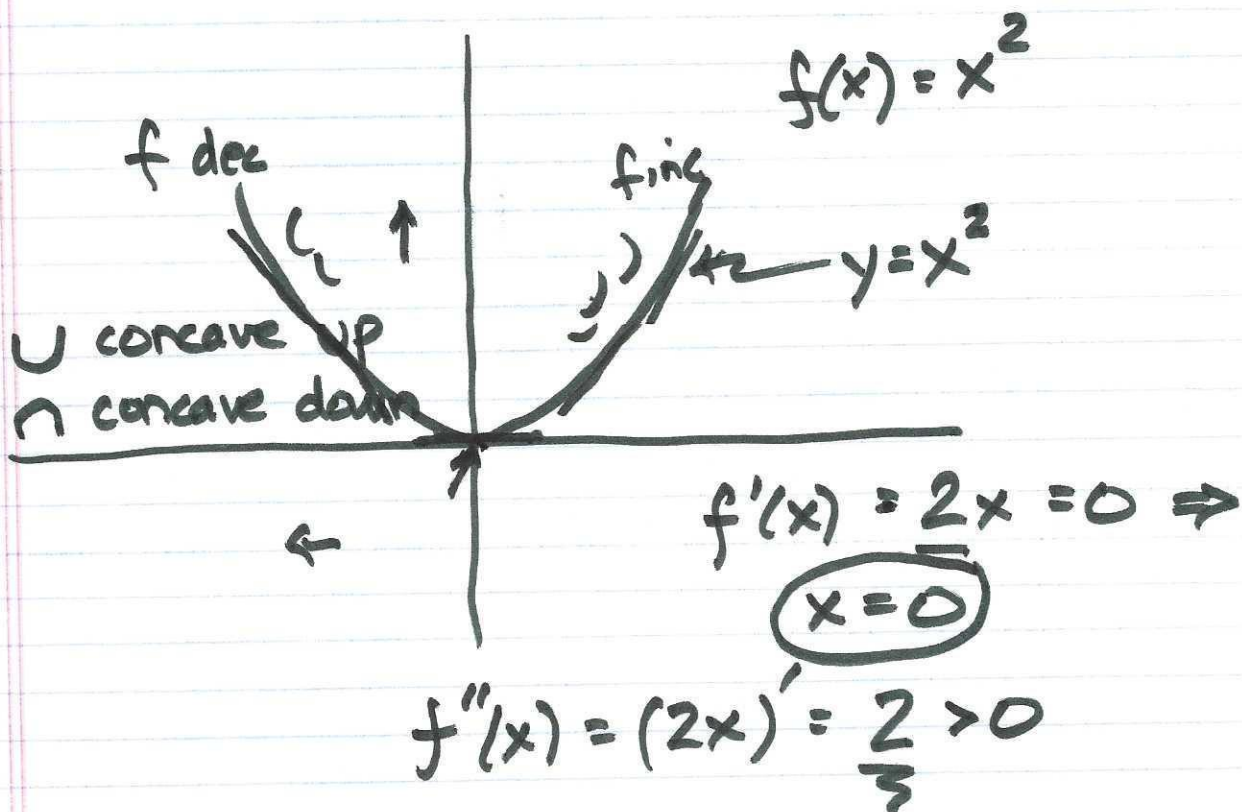 f(x) = x²
f dec
f inc
y = x²
∪ concave up
∩ concave down
f'(x) = 2x = 0 ⇒
x = 0
f''(x) = (2x)' = 2 > 0